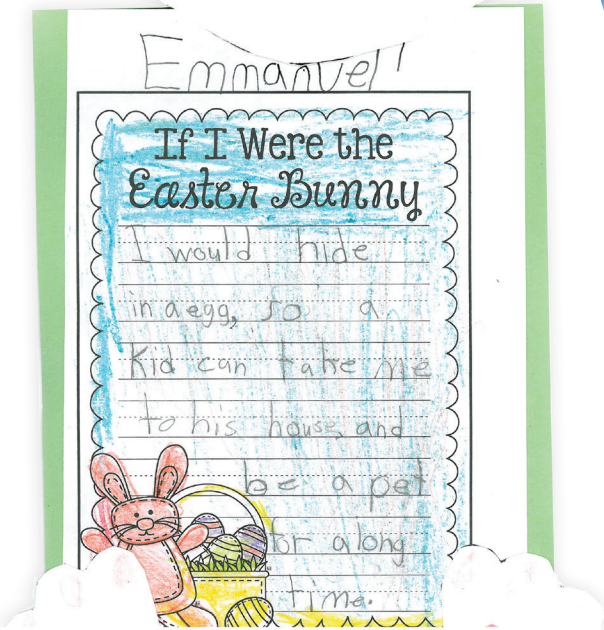 Emmanuel
If I Were the
Easter Bunny
I would hide
in a egg, so a
Kid can take me
to his house, and
be a pet
for a long
time.